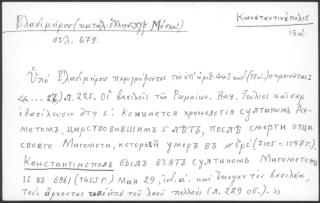 Βλαδιμήρου (κατάλ. ἑλλην. χφ Μόσχας)
σελ. 679.
Κωνσταντινούπολις
Ὑπὸ Βλαδιμήρου περιγράφονται τὸν ὑπ' ἀριθ. 445
«... φ. 225. Οἱ βασιλεῖς τῶν Ρωμαίων. Нач. Ἰούλιος καῖσαρ
ἐβασίλευσεν ἔτη ε΄. Кончается хронологія султаномъ Ах-
метомъ, царствовавшимъ 5 лѣтъ, послѣ смерти отца
своего Магомета, который умеръ въ (7105-1597 г.)
Константинополь былъ взятъ султаномъ Магометомъ
II въ 6961 (1453 г.) Мая 29, ἰνδ. α΄. καὶ τὸν βασιλέα,
τοὺς ἄρχοντας τοῦ λαοῦ πολλοὺς (л. 229 об.).»